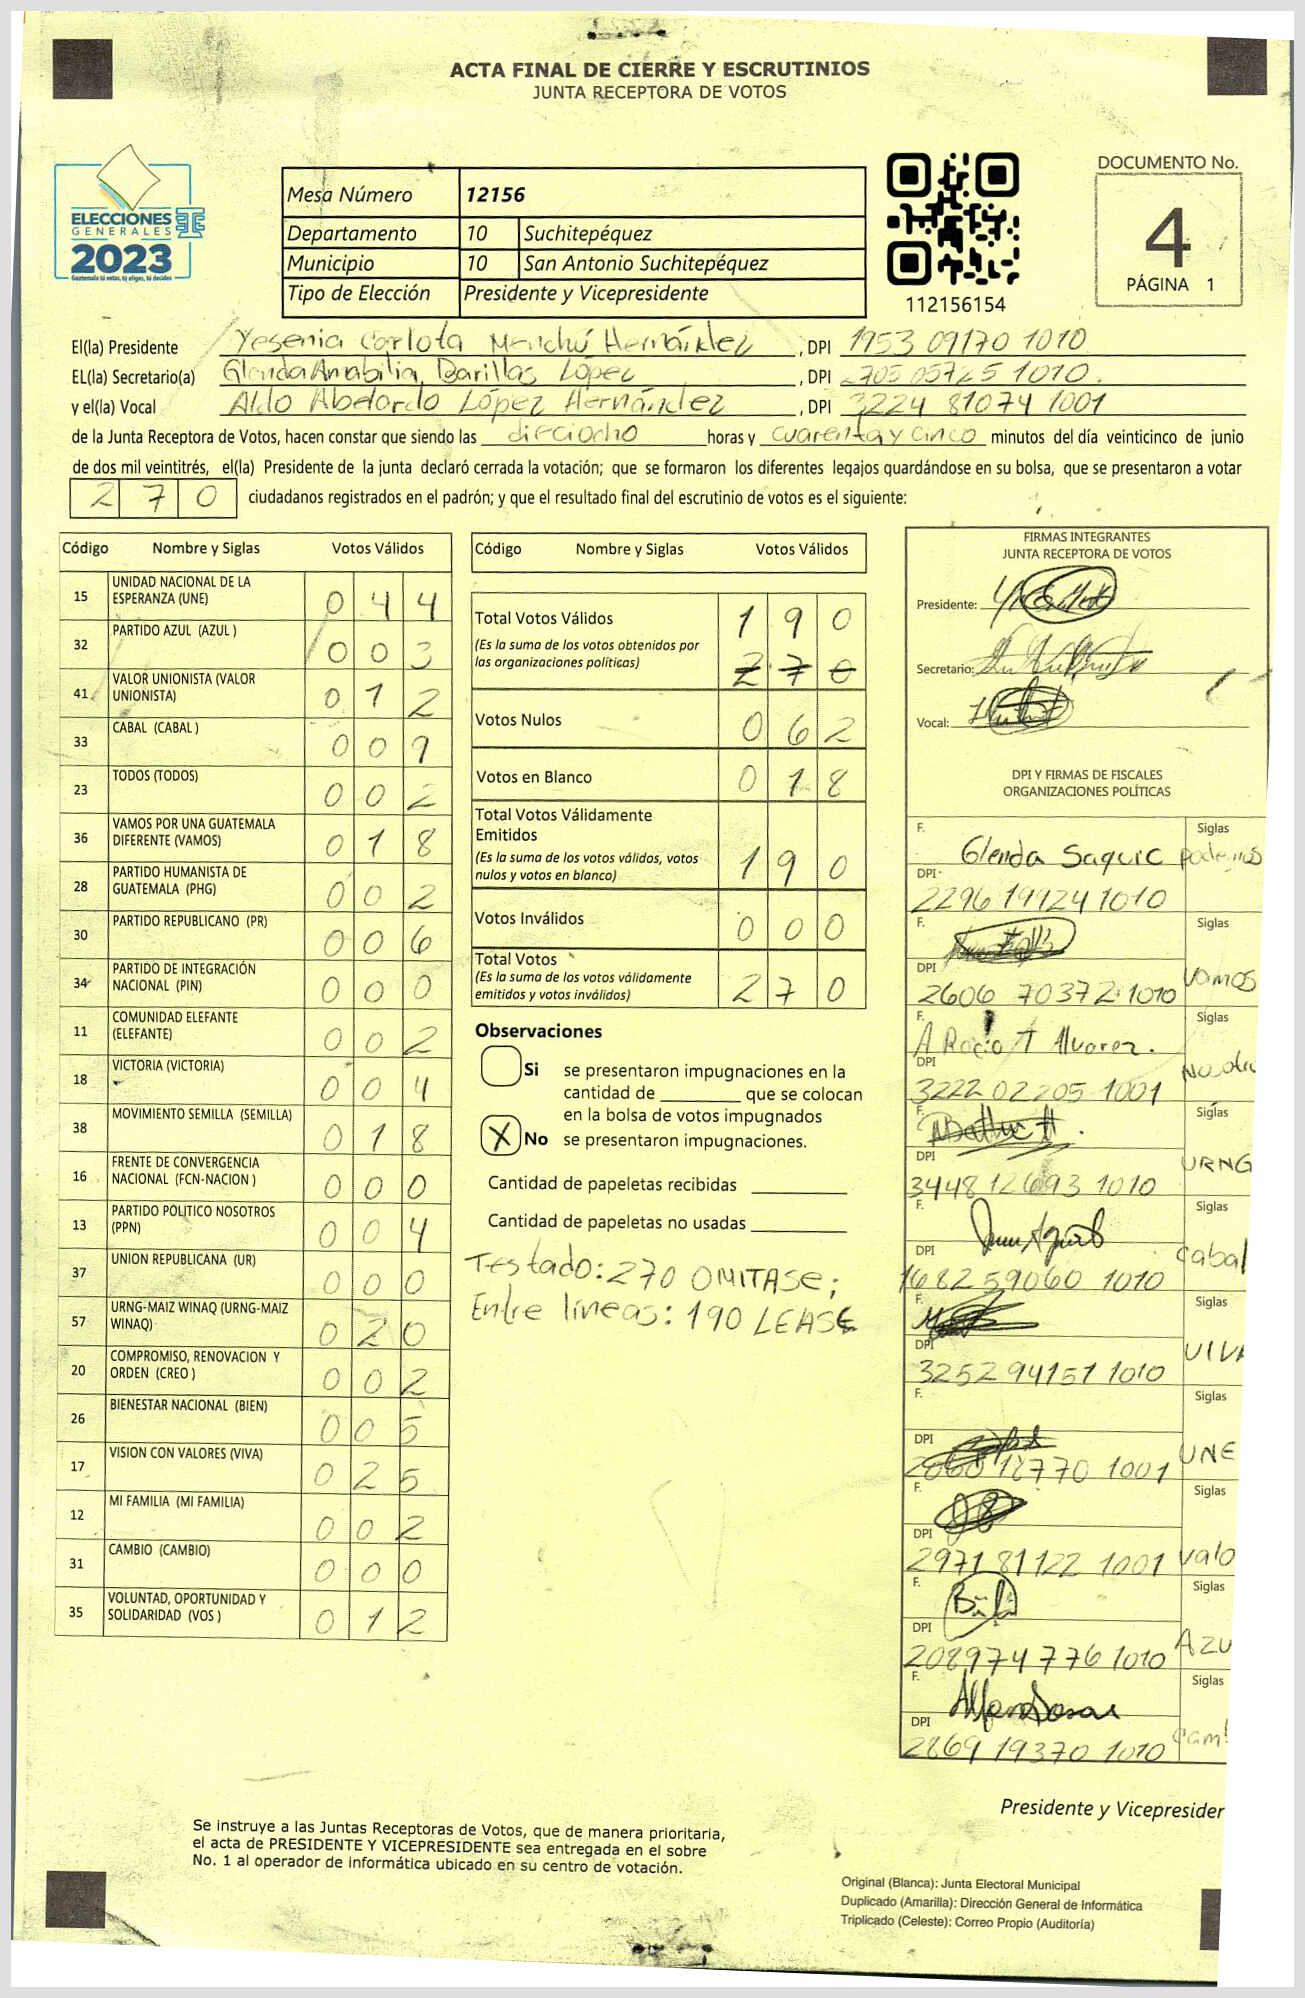 ACTA FINAL DE CIERRE Y ESCRUTINIOS
JUNTA RECEPTORA DE VOTOS
ELECCIONES
GENERALES
2023
Guatemala tú votas, tú eliges, tú decides
Mesa Número 12156
Departamento 10 Suchitepéquez
Municipio 10 San Antonio Suchitepéquez
Tipo de Elección Presidente y Vicepresidente
112156154
DOCUMENTO No.
4
PÁGINA 1
El(la) Presidente Yesenia Carlota Menchú Hernández, DPI 1953 09170 1010
EL(la) Secretario(a) Glenda Amabilia Barillas López, DPI 2705 05725 1010
y el(la) Vocal Aldo Abelardo López Hernández, DPI 3224 81074 1001
de la Junta Receptora de Votos, hacen constar que siendo las dieciocho horas y cuarenta y cinco minutos del día veinticinco de junio
de dos mil veintitrés, el(la) Presidente de la junta declaró cerrada la votación; que se formaron los diferentes legajos guardándose en su bolsa, que se presentaron a votar
270 ciudadanos registrados en el padrón; y que el resultado final del escrutinio de votos es el siguiente:
Código Nombre y Siglas Votos Válidos
15 UNIDAD NACIONAL DE LA ESPERANZA (UNE) 044
32 PARTIDO AZUL (AZUL ) 003
41 VALOR UNIONISTA (VALOR UNIONISTA) 012
33 CABAL (CABAL ) 009
23 TODOS (TODOS) 002
36 VAMOS POR UNA GUATEMALA DIFERENTE (VAMOS) 018
28 PARTIDO HUMANISTA DE GUATEMALA (PHG) 002
30 PARTIDO REPUBLICANO (PR) 006
34 PARTIDO DE INTEGRACIÓN NACIONAL (PIN) 000
11 COMUNIDAD ELEFANTE (ELEFANTE) 002
18 VICTORIA (VICTORIA) 004
38 MOVIMIENTO SEMILLA (SEMILLA) 018
16 FRENTE DE CONVERGENCIA NACIONAL (FCN-NACION ) 000
13 PARTIDO POLITICO NOSOTROS (PPN) 004
37 UNION REPUBLICANA (UR) 000
57 URNG-MAIZ WINAQ (URNG-MAIZ WINAQ) 020
20 COMPROMISO, RENOVACION Y ORDEN (CREO ) 002
26 BIENESTAR NACIONAL (BIEN) 005
17 VISION CON VALORES (VIVA) 025
12 MI FAMILIA (MI FAMILIA) 002
31 CAMBIO (CAMBIO) 000
35 VOLUNTAD, OPORTUNIDAD Y SOLIDARIDAD (VOS ) 012
Código Nombre y Siglas Votos Válidos
Total Votos Válidos 190
(Es la suma de los votos obtenidos por las organizaciones políticas) 270
Votos Nulos 062
Votos en Blanco 018
Total Votos Válidamente Emitidos
(Es la suma de los votos válidos, votos nulos y votos en blanco) 190
Votos Inválidos 000
Total Votos
(Es la suma de los votos válidamente emitidos y votos inválidos) 270
Observaciones
Si se presentaron impugnaciones en la
cantidad de ________ que se colocan
en la bolsa de votos impugnados
X No se presentaron impugnaciones.
Cantidad de papeletas recibidas
Cantidad de papeletas no usadas
Testado: 270 OMITASE;
Entre líneas: 190 LEASE
FIRMAS INTEGRANTES
JUNTA RECEPTORA DE VOTOS
Presidente:
Secretario:
Vocal:
DPI Y FIRMAS DE FISCALES
ORGANIZACIONES POLÍTICAS
F. Glenda Saquic Siglas podemos
DPI 2296 19924 1010
F. Siglas Vamos
DPI 2606 70372 1010
F. A Rocio T Alvarez. Siglas
DPI 3222 02205 1001
F. Siglas URNG
DPI 3448 12693 1010
F. Siglas Cabal
DPI 1682 59060 1010
F. Siglas VIVA
DPI 3252 94151 1010
F. Siglas UNE
DPI 2060 18770 1001
F. Siglas Valo
DPI 2971 81122 1001
F. Siglas Azu
DPI 2089 74776 1010
F. Siglas Cam
DPI 2869 19370 1010
Presidente y Vicepresiden
Se instruye a las Juntas Receptoras de Votos, que de manera prioritaria,
el acta de PRESIDENTE Y VICEPRESIDENTE sea entregada en el sobre
No. 1 al operador de informática ubicado en su centro de votación.
Original (Blanca): Junta Electoral Municipal
Duplicado (Amarilla): Dirección General de Informática
Triplicado (Celeste): Correo Propio (Auditoría)